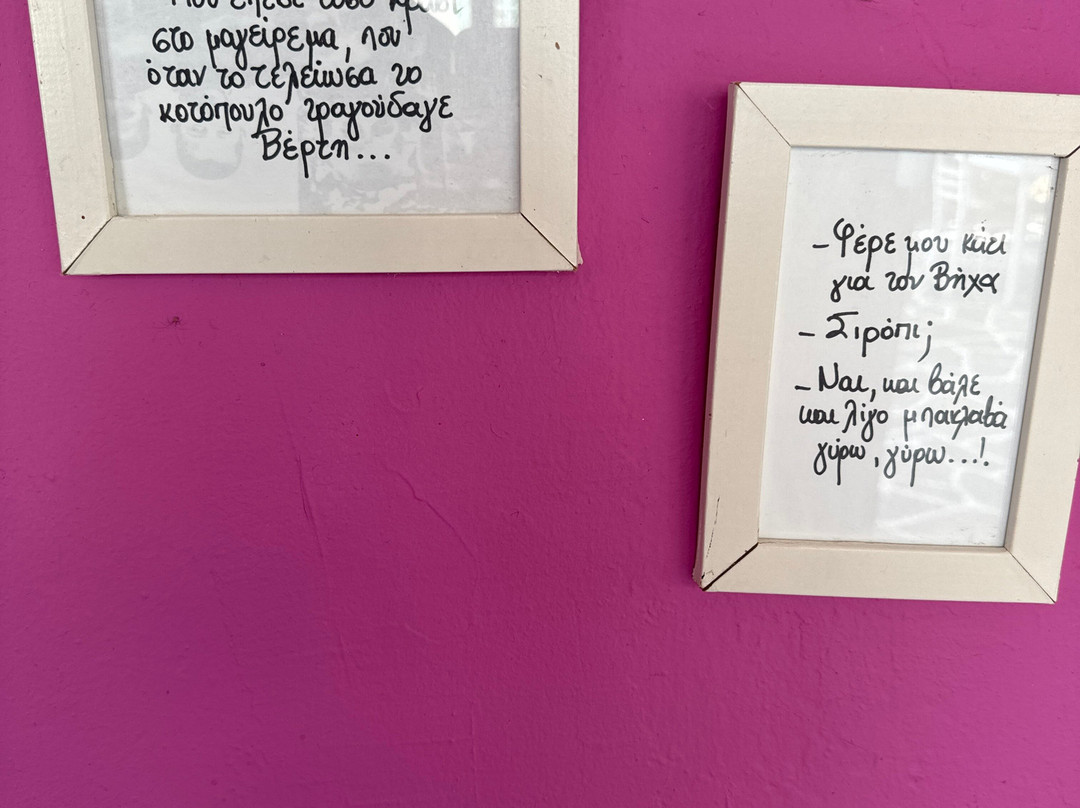 στο μαγείρεμα, που
όταν το τελείωσα το
κοτόπουλο τραγούδαγε
Βέρτη...
- Φέρε μου κάτι
για τον Βήχα
- Σιρόπι;
- Ναι, και βάλε
και λίγο μπακλαβά
γύρω, γύρω...!